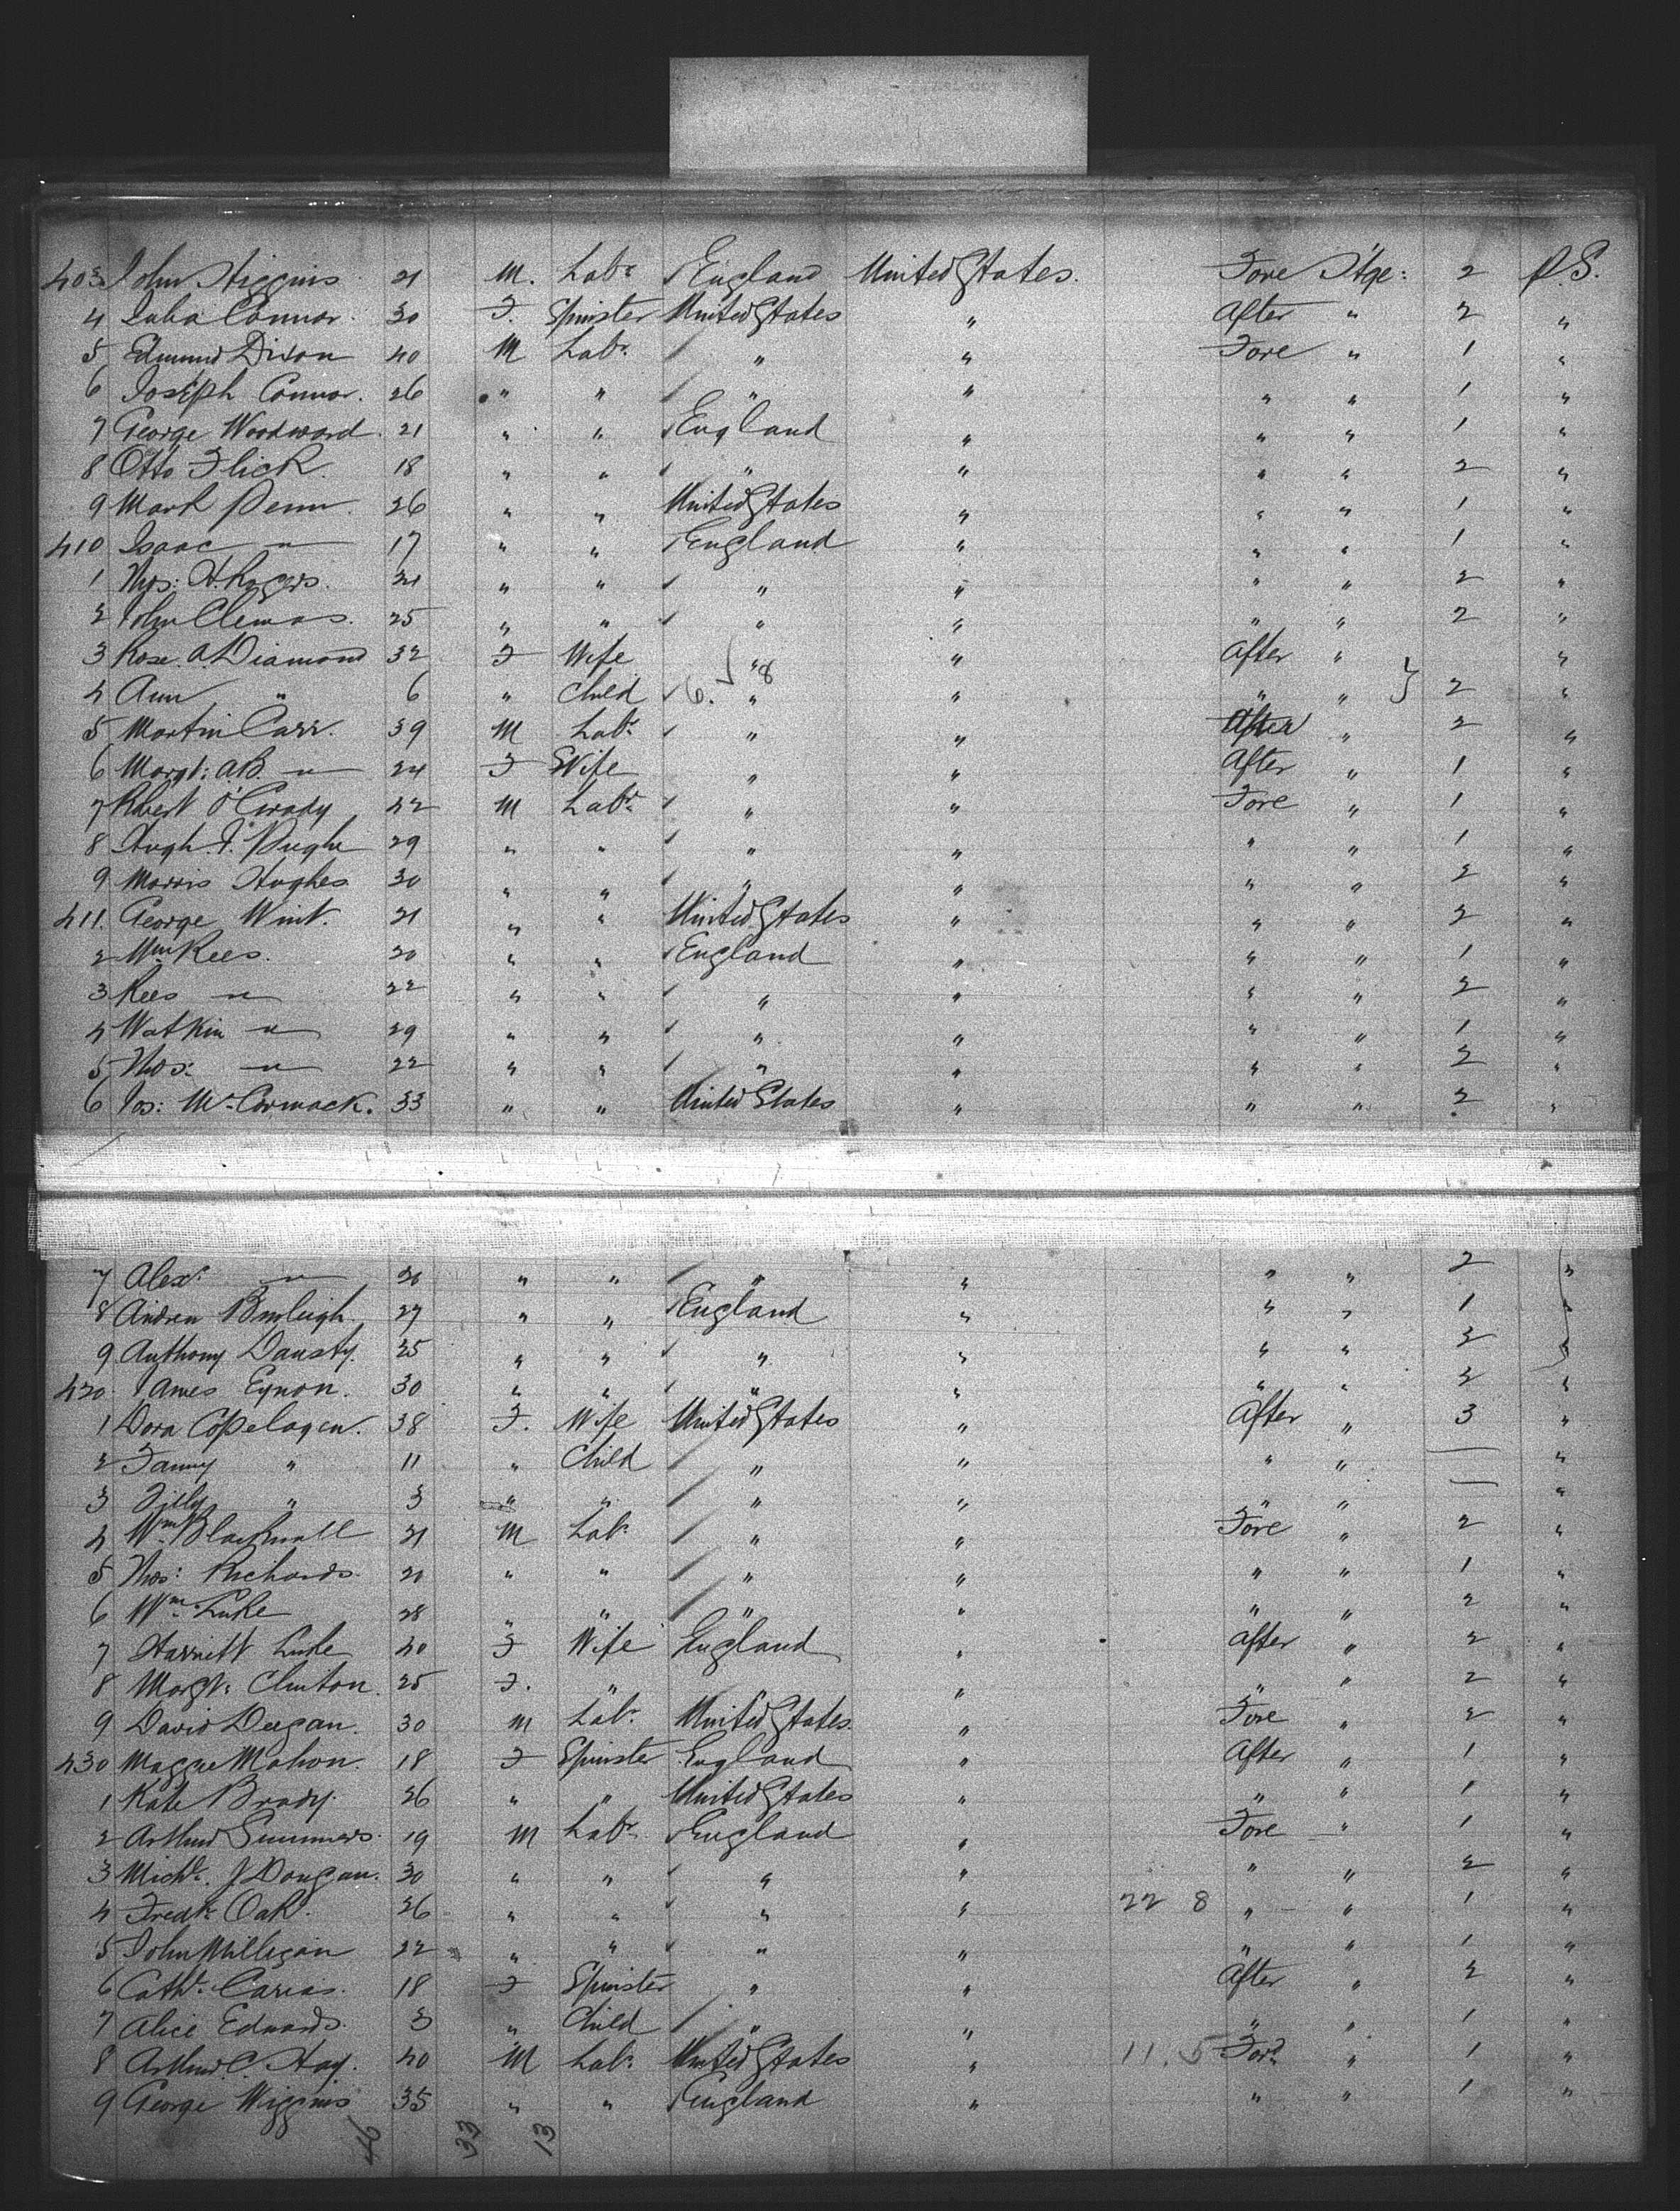 403 John Higgins 21 M. Labr England United States. Fore Stge: 2 P.S.
4 Julia Connor. 30 F. Spinster United States " After " 2 "
5 Edmund Dixon 40 M Labr " " Fore " 1 "
6 Joseph Connor. 26 " " " " " " 1 "
7 George Woodward. 21 " " England " " " 1 "
8 Otto Flick 18 " " " " " " 2 "
9 Mark Penn. 26 " " United States " " " 1 "
410 Isaac " 17 " " England " " " 1 "
1 Thos: H. Rogers. 21 " " " " " " 2 "
2 John Clemas. 25 " " " " " " 2 "
3 Rose. A. Diamond 32 F Wife " 8 " After " "
4 Ann " 6 " Child 6. " " " " } 2 "
5 Martin Carr. 39 M Labr " " After " 2 "
6 Margt: A.B. " 24 F Wife " " After " 1 "
7 Robert O'Grady 42 M Labr " " Fore " 1 "
8 Hugh. J. Pughe 29 " " " " " " 1 "
9 Morris Hughes 30 " " " " " " 2 "
411. George Wint. 21 " " United States " " " 2 "
2 Wm Rees. 20 " " England " " " 1 "
3 Rees " 22 " " " " " " 2 "
4 Watkin " 29 " " " " " " 1 "
5 Thos: " 22 " " " " " " 2 "
6 Jos: McCormack. 33 " " United States " " " 2 "
7 Alexr " 20 " " " " " " 2 "
8 Andrew Burleigh 27 " " England " " " 1 "
9 Anthony Dansty. 25 " " " " " " 2 "
420. James Eynon. 30 " " " " " " 2 "
1 Dora Copelagen. 38 F. Wife United States " After " 3 "
2 Fanny " 11 " Child " " " " — "
3 " 3 " " " " " " — "
4 Wm Blackwall 21 M Labr " " Fore " 2 "
5 Thos: Richards. 20 " " " " " " 1 "
6 Wm Luke 28 " " " " " " 2 "
7 Harriett Luke 40 F Wife England " After " 2 "
8 Margt: Clinton. 25 F. " " " " " 2 "
9 David Deegan. 30 M Labr United States. " Fore " 2 "
430 Maggie Mahon. 18 F Spinster England " After " 1 "
1 Kate Brady. 26 " " United States " " " 1 "
2 Arthur Summers. 19 M Labr England " Fore " 1 "
3 Michl. J Dougan. 30 " " " " " " 2 "
4 Fredk Oak. 26 " " " " 22 8 " " 1 "
5 John Milligan 22 " " " " " " 1 "
6 Cathe 18 F Spinster " " After " 2 "
7 Alice Edwards. 3 " Child " " " " 1 "
8 Arthur C. Hay. 40 M Labr United States " 11. 5 Fore " 1 "
9 George Wiggins 35 " " England " " " 1 "
46 33 13